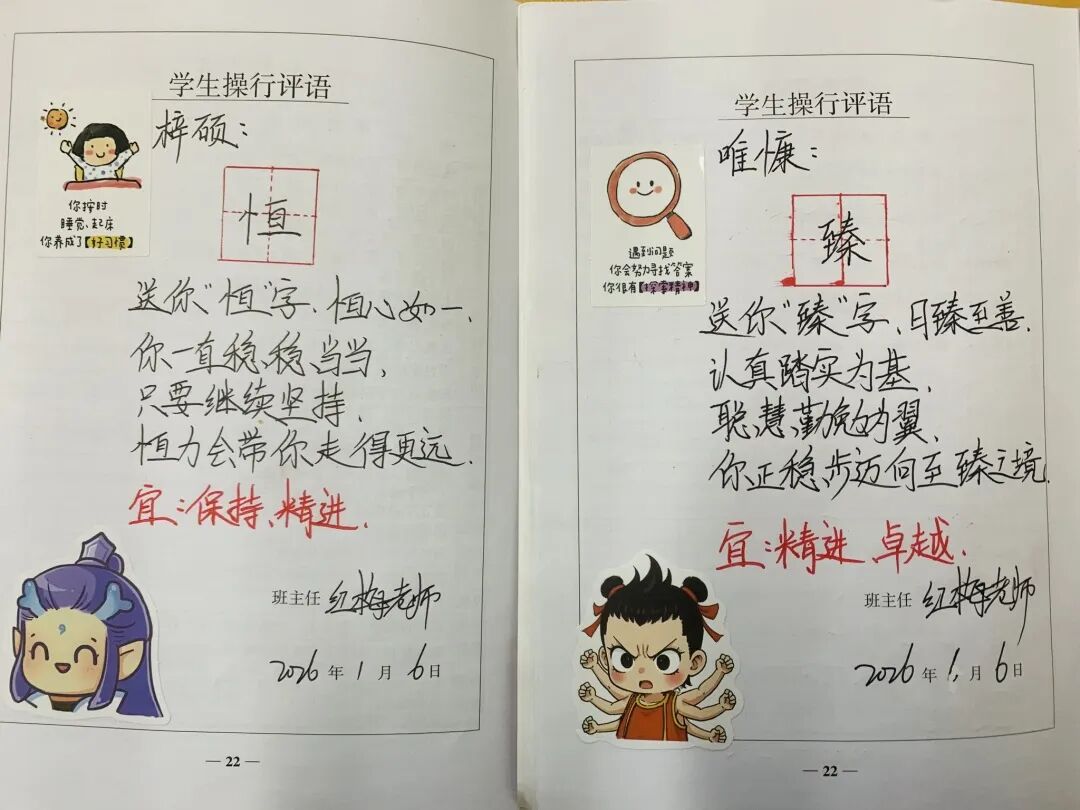 学生操行评语
梓硕：
你按时
睡觉、起床
你养成了【好习惯】
恒
送你“恒”字、恒心如一、
你一直稳、稳、当当、
只要继续坚持、
恒力会带你走得更远.
宜：保持、精进.
班主任 红梅老师
2026年1月6日
— 22 —
学生操行评语
唯慷：
遇到问题
你会努力寻找答案
你很有【探索精神】
臻
送你“臻”字、日臻至善.
认真踏实为基、
聪、慧、勤勉为翼、
你正稳步迈向至臻之境.
宜：精进、卓越.
班主任 红梅老师
2026年1月6日
— 22 —